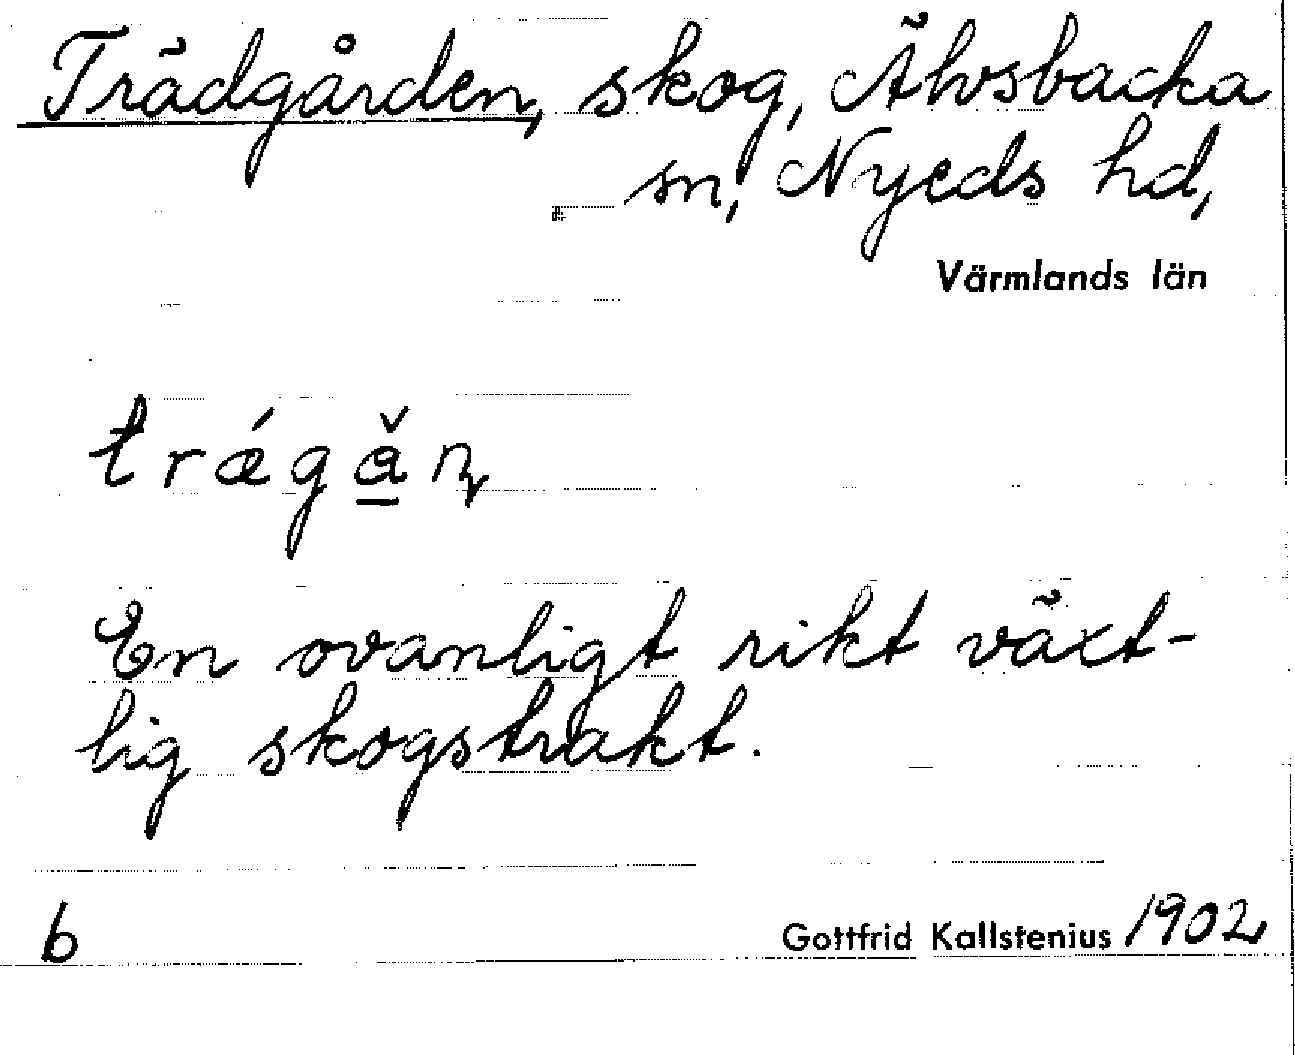 Trädgården, skog, Älvsbacka
sn, Nyeds hd,
Värmlands län
trǽgå̲̌ɳ
En ovanligt rikt växt-
lig skogstrakt.
b
Gottfrid Kallstenius 1902